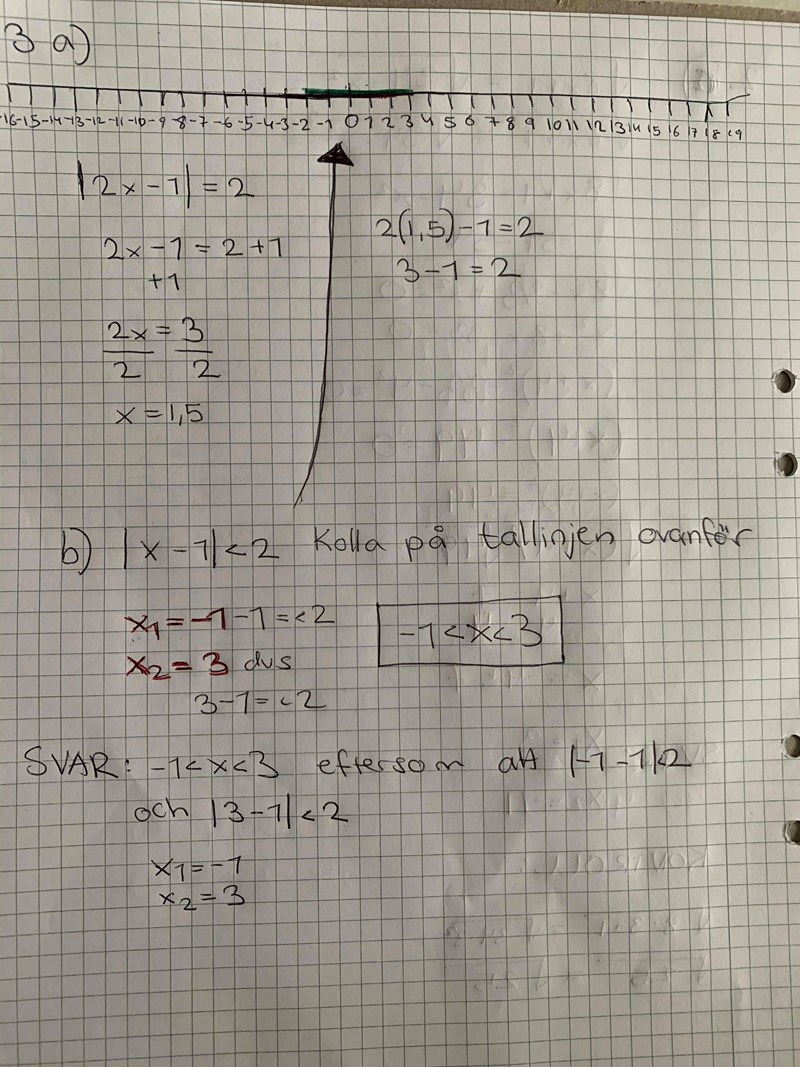 3 a)
-16 -15 -14 -13 -12 -11 -10 -9 -8 -7 -6 -5 -4 -3 -2 -1 0 1 2 3 4 5 6 7 8 9 10 11 12 13 14 15 16 17 18 19
|2x - 1| = 2
2x - 1 = 2 + 1
+1
2x = 3
2 2
x = 1,5
2(1,5) - 1 = 2
3 - 1 = 2
b) |x - 1| < 2 Kolla på tallinjen ovanför
x₁ = -1 - 1 = < 2
x₂ = 3 dvs
3 - 1 = < 2
-1 < x < 3
SVAR: -1 < x < 3 eftersom att |-1 - 1| < 2
och |3 - 1| < 2
x₁ = -1
x₂ = 3